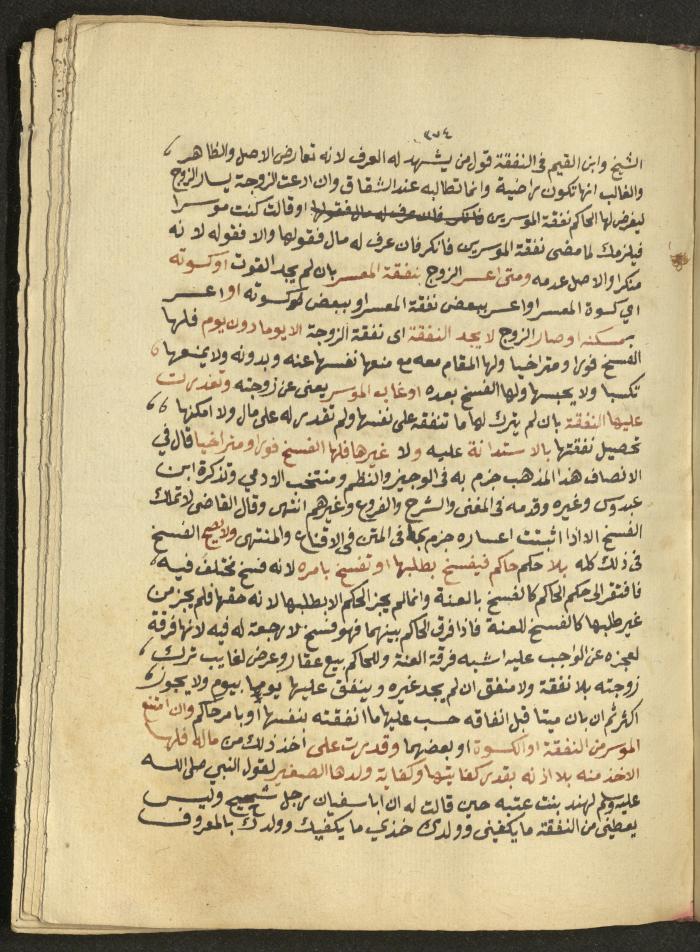 ٢٧٤
الشيخ وابن القيم في النفقة قول من يشهد له العرف لانه تعارض الاصل والظاهر
والغالب انها تكون راضية وانما تطالبه عند الشقاق وان ادعت الزوجة يسار الزوج
ليفرض لها الحاكم نفقة الموسرين فانكر فان عرف له مال فقولها او قالت كنت موسرا
فيلزمك لما مضى نفقة الموسرين فانكر فان عرف له مال فقولها والا فقوله لانه
منكر والاصل عدمه ومتى اعسر الزوج بنفقة المعسر بان لم يجد القوت او كسوته
اي كسوة المعسر او اعسر ببعض نفقة المعسر او ببعض كسوته او اعسر
بمسكنه او صار الزوج لا يجد النفقة اى نفقة الزوجة الا يوما دون يوم فلها
الفسخ فورا ومتراخيا ولها المقام معه مع منعها نفسها عنه وبدونه ولا يمنعها
تكسبا ولا يحبسها ولها الفسخ بعده او غاب الموسر يعنى عن زوجته وتعذرت
عليها النفقة بان لم يترك لها ما تنفقه على نفسها ولم تقدر له على مال ولا امكنها
تحصيل نفقتها بالاستدانة عليه ولا غيرها فلها الفسخ فورا ومتراخيا قال في
الانصاف هذا المذهب جزم به في الوجيز والنظم ومنتخب الادمي وتذكرة ابن
عبدوس وغيره وقدمه في المغنى والشرح والفروع وغيرهم انتهى وقال القاضى لا تملك
الفسخ الا اذا اثبتت اعساره جزم بما في المتن في الاقناع والمنتهى ولا يصح الفسخ
في ذلك كله بلا حكم حاكم فيفسخ بطلبها او تفسخ بامره لانه فسخ مختلف فيه
فافتقر الى حكم الحاكم كالفسخ بالعنة وانما لم يجز الحكم الا بطلبها لانه حقها فلم يجز من
غير طلبها كالفسخ للعنة فاذا فرق الحاكم بينهما فهو فسخ لا رجعة له فيه لانها فرقة
لعجزه عن الواجب عليه اشبه فرقة العنة وللحاكم بيع عقار وعرض لغايب ترك
زوجته بلا نفقة ولا منفق ان لم يجد غيره وينفق عليها يوما بيوم ولا يجوز
اكثر ثم ان بان ميتا قبل انفاقه حسب عليها ما انفقته لنفسها او بامر حاكم وان امتنع
الموسر من النفقة او الكسوة او بعضهما وقدرت على أخذ ذلك من ماله فلها
الاخذ منه بلا اذنه بقدر كفايتها وكفاية ولدها الصغير لقول النبي صلى الله
عليه وسلم لهند بنت عتبه حين قالت له ان ابا سفيان رجل شحيح وليس
يعطينى من النفقة ما يكفينى وولدى خذي ما يكفيك وولدك بالمعروف